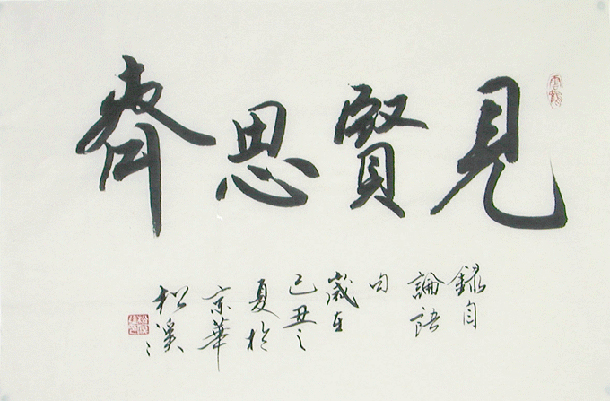 見賢思齊
錄自
論語
句
歲在
己丑之
夏於
京華
松溪